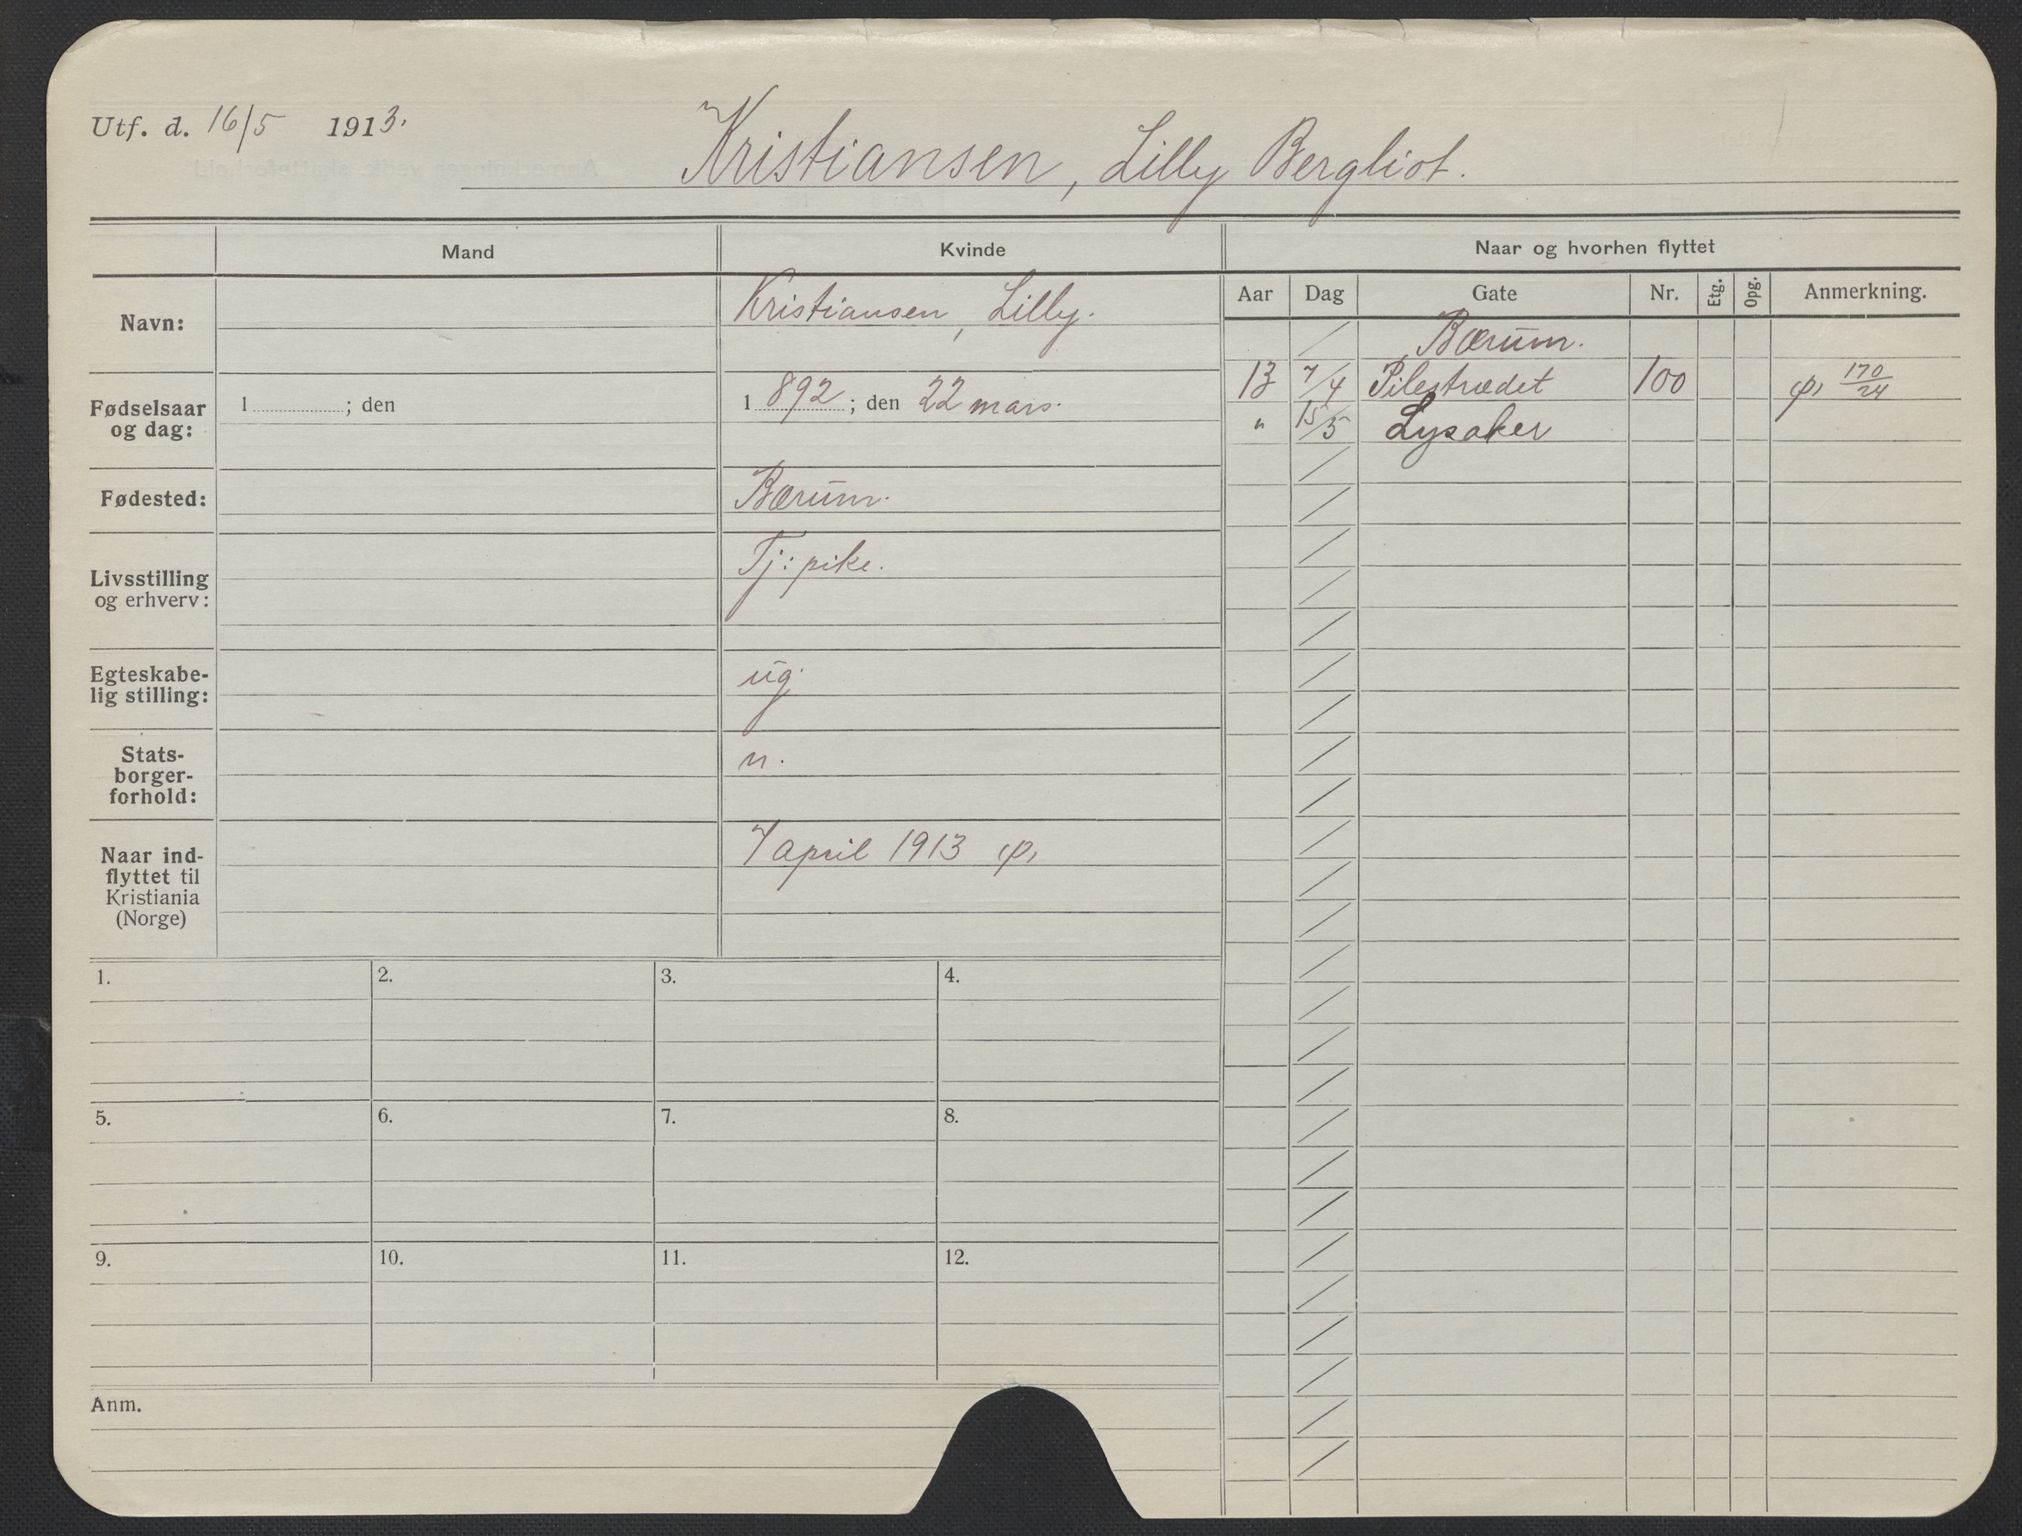 Utf. d. 16/5 1913.
Kristiansen, Lilly Bergliot.
Mand
Kvinde
Naar og hvorhen flyttet
Aar Dag Gate Nr. Etg. Opg. Anmerkning.
Navn:
Kristiansen, Lilly.
Bærum.
13 7/4 Pilestrædet 100 170/24
" 15/5 Lysaker
Fødselsaar
og dag:
1 ; den
1892; den 22 mars.
Fødested:
Bærum.
Livsstilling
og erhverv:
Tj: pike.
Egteskabe-
lig stilling:
ug.
Stats-
borger-
forhold:
n.
Naar ind-
flyttet til
Kristiania
(Norge)
7 april 1913
1. 2. 3. 4.
5. 6. 7. 8.
9. 10. 11. 12.
Anm.